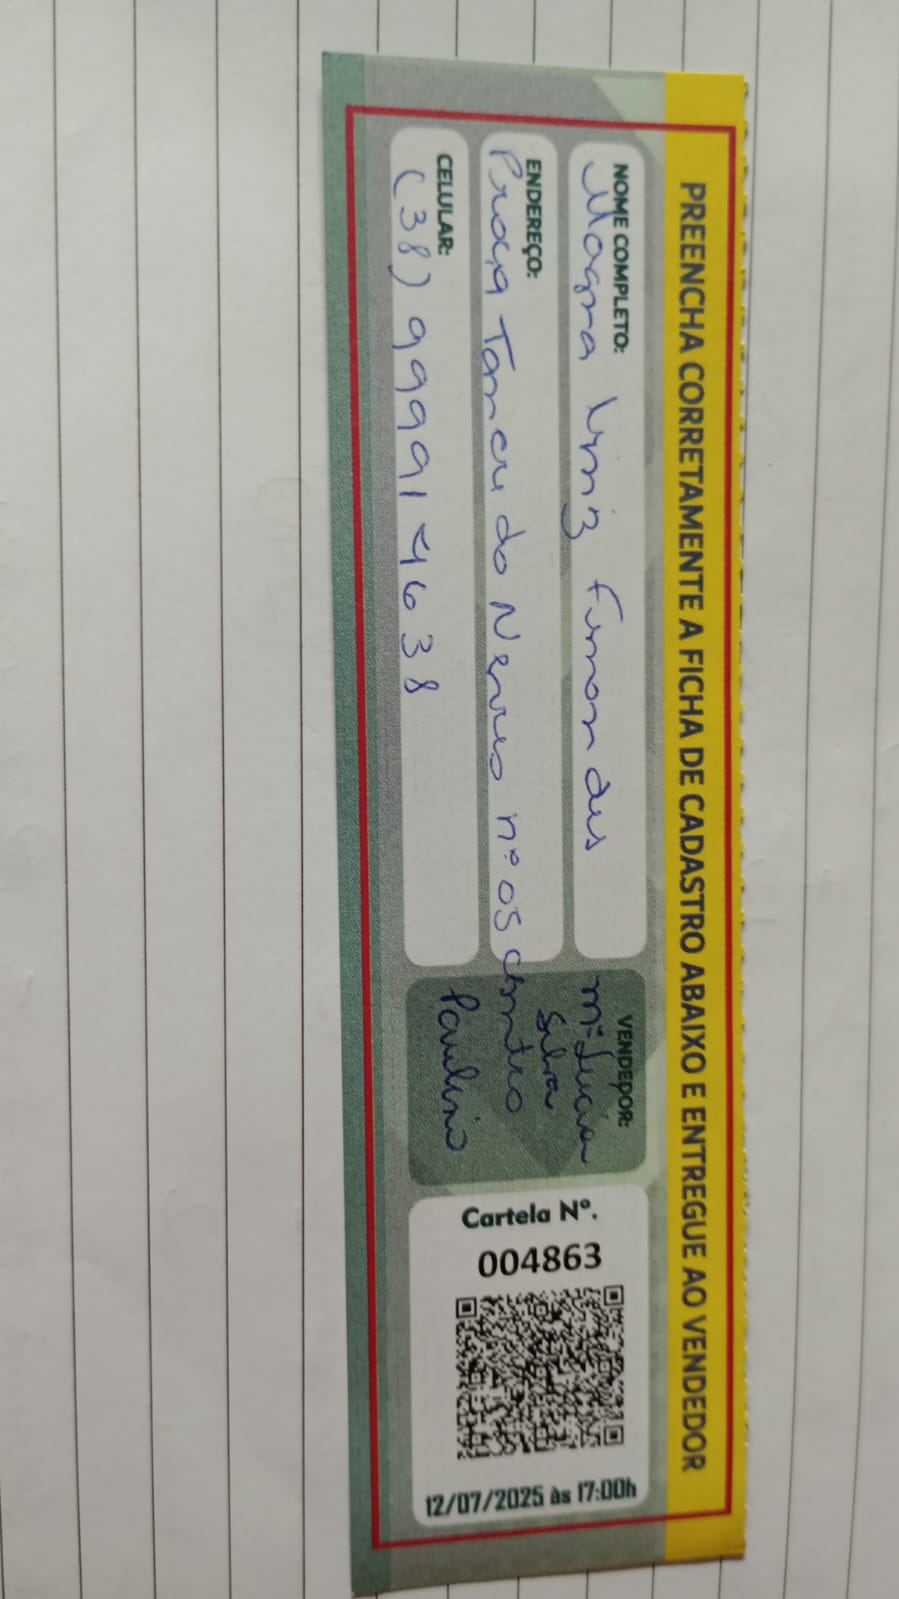 PREENCHA CORRETAMENTE A FICHA DE CADASTRO ABAIXO E ENTREGUE AO VENDEDOR
NOME COMPLETO:
Magna Diniz Fernandes
ENDEREÇO:
Praça Tancredo Neves nº 05 centro
CELULAR:
(38) 999914638
VENDEDOR:
Mª Lucia
Silva
Paulino
Cartela Nº.
004863
12/07/2025 às 17:00h